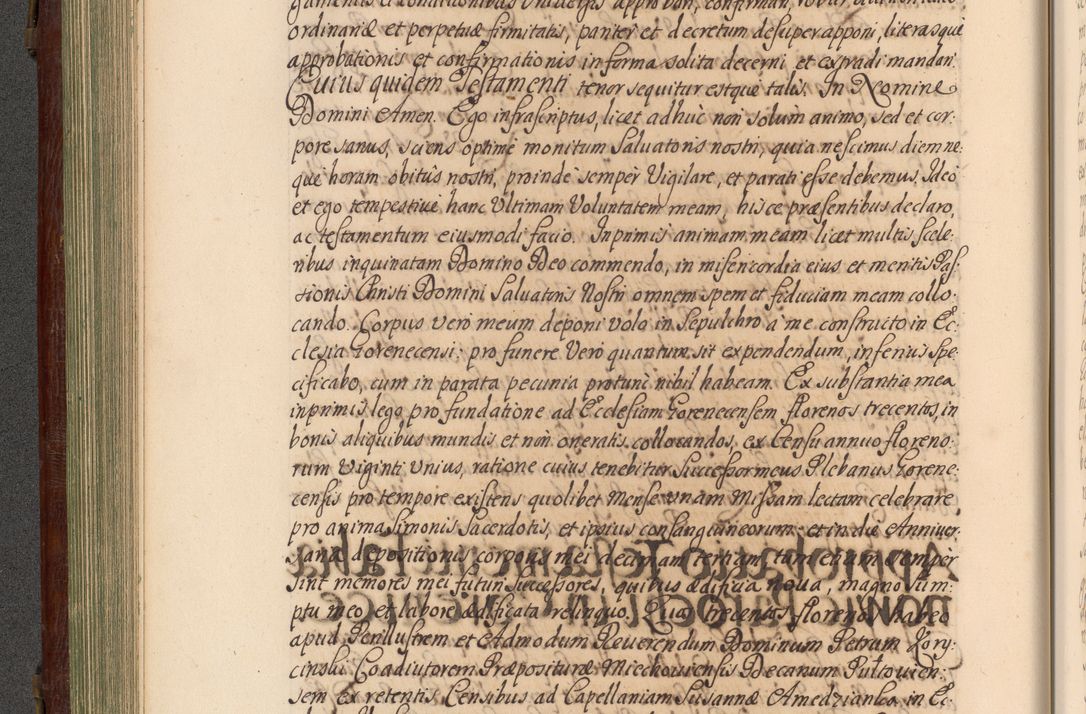 ordinariæ et perpetuæ firmitatis, pariter et decretum desuper apponi, literasque
approbationis et confirmationis in forma solita decerni et extradi mandari.
Cuius quidem Testamenti tenor sequitur estque talis. In Nomine
Domini Amen. Ego infrascriptus, licet adhuc non solum animo, sed et cor-
pore sanus, sciens optime monitum Salvatoris nostri, quia nescimus diem ne-
que horam obitus nostri, proinde semper Vigilare, et parati esse debemus. Ideo
et ego tempestive hanc Ultimam Voluntatem meam, hisce præsentibus declaro,
ac testamentum eiusmodi facio. Inprimis animam meam licet multis scele-
ribus inquinatam Domino Deo commendo, in misericordia eius et meritis Pas-
sionis Christi Domini Salvatoris Nostri omnem spem et fiduciam meam collo-
cando. Corpus vero meum deponi volo in Sepulchro a me constructo in Ec-
clesia Gorenecensi: pro funere Vero quantum sit expendendum, inferius spe-
cificabo, cum in parata pecunia protunc nihil habeam. Ex substantia mea
inprimis lego pro fundatione ad Ecclesiam Gorenecensem florenos trecentos, in
bonis aliquibus mundis et non oneratis collocandos, ex Censu annuo floreno-
rum Viginti Unius, ratione cuius tenebitur Successor meus Plebanus Gorene-
censis pro tempore existens quolibet Mense unam Missam lectam celebrare
pro anima Simonis Sacerdotis, et ipsius consanguineorum: et in die Anniver-
sariæ depositionis corporis mei decantam tertiam tantetiam semper
sint memores mei futuri successores, quibus ædificia nova, magno sum-
ptu meo et labore ædificata relinquo. Quos trecentos florenos habeo
apud Perillustrem et Admodum Reverendum Dominum Petrum Kory-
cinski Coadiutorem Præpositure Miechoviensis Decanum Pultovien-
sem Ex retentis Censibus ad Capellaniam Susannæ Amedzianka in Ec-